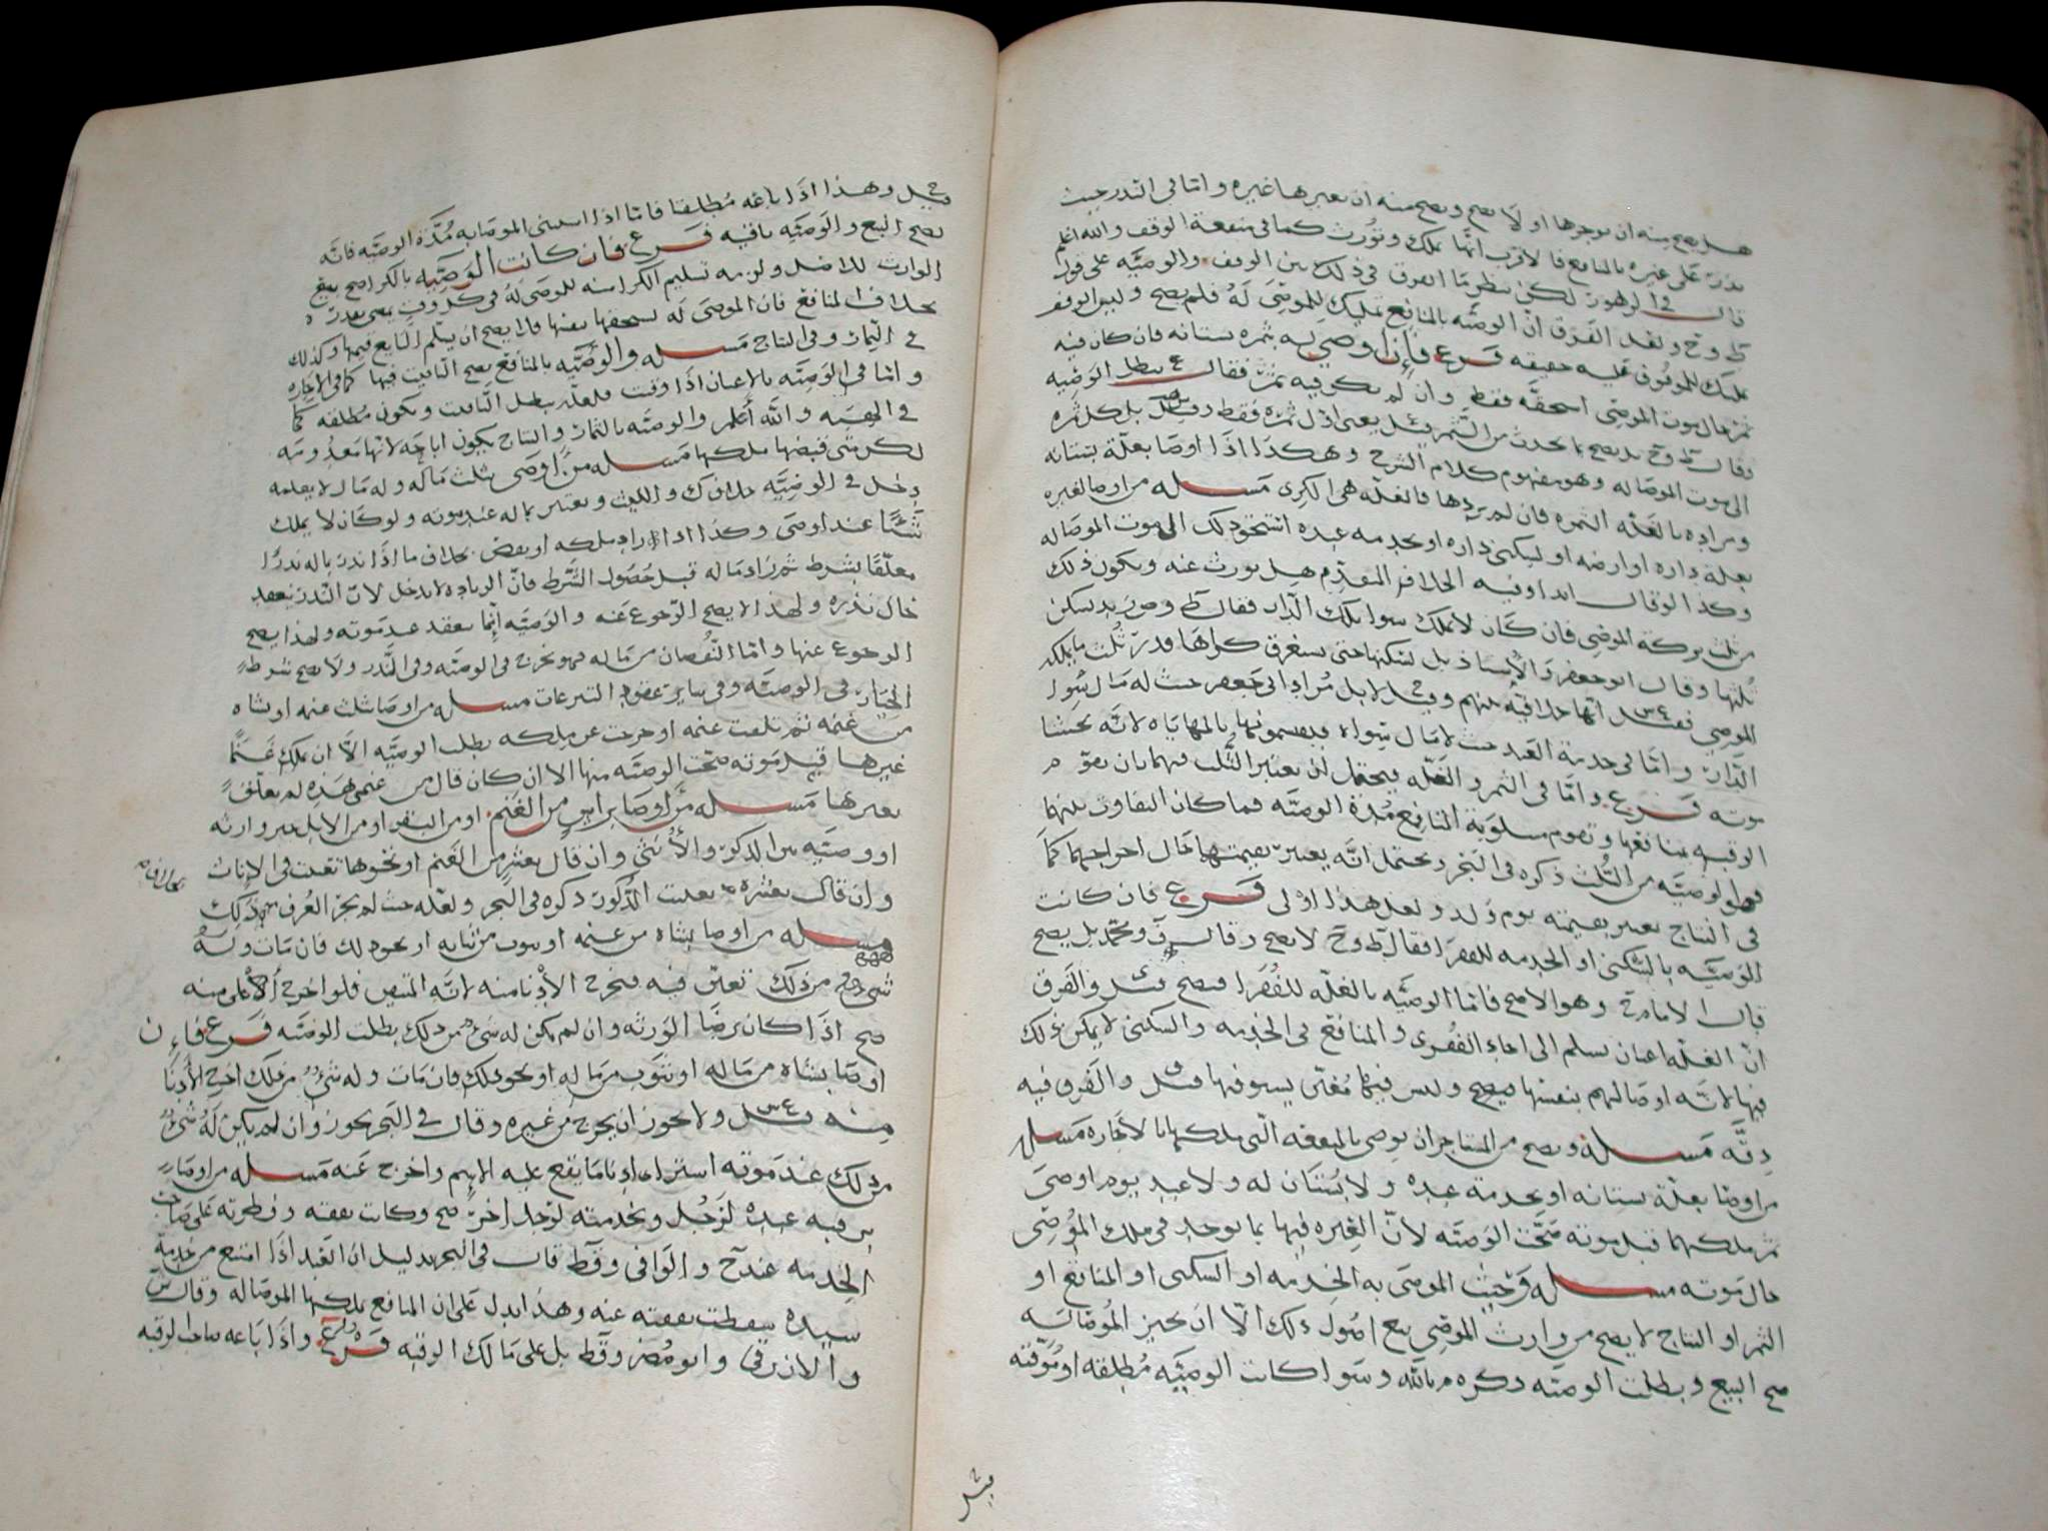 هل يصح منه ان يوجرها او لا يصح ويصح منه ان يعيرها غيره واما في النذر حيث
نذر على غيره بالمنافع فالاقرب انها تملك وتورث كما في منفعة الوقف والله اعلم
قال في الزهور لكن ينظر ما الفرق في ذلك بين الوقف والوصيه على قول
ط وح ولعل الفرق ان الوصيه بالمنافع تمليك للموصى له فلم يصح وليس الوقف
تمليك للموقوف عليه حقيقه فرع فإذا وصي له بثمره بستانه فان كان فيه
ثمر حال موت الموصي استحقه فقط وان لم يكن فيه ثمر فقال ع تبطل الوصيه
وقال ط وح بل يصح بما يحدث من الثمر قيل يعني اول ثمره فقط وقيل بل كل ثمره
الى موت الموصا له وهو مفهوم كلام الشرح وهكذا اذا اوصا بغلة بستانه
ومراده بالغله الثمره فان لم يردها فالغله هي الكرى مسله من اوصا لغيره
بغلة داره او ارضه او لسكنى داره او بخدمه عبده استحق ذلك الى موت الموصا له
وكذا لو قال ابدا وفيه الخلاف المتقدم هل يورث عنه ويكون ذلك
من ثلث تركة الموصي فان كان لا يملك سوا تلك الدار فقال ط وص بالله يسكن
ثلثها وقال ابو جعفر والاستاذ بل يسكنها حتى يستغرق كراها قدر ثلث ما يملك
الموصي فقيل س ع انها خلافيه بينهم وقيل ح لا بل مراد ابي جعفر حيث له مال سوا
الدار واما في خدمة العبد حيث لا مال سواه فيقسمونها بالمهاياه لانه يحتسا
موته فرع واما في الثمر والغله فيحتمل ان يعتبر الثلث فيهما بان تقوم
الرقبه بمنافعها وتقوم مسلوبة المنافع مدة الوصيه فما كان التفاوت بينهما
فهو الوصيه من الثلث ذكره في البحر ويحتمل انه يعتبر بقيمتها حال اخراجهما كما
في النتاج يعتبر بقيمته يوم ولد ولعل هذا اولى فرع فان كانت
الوصيه بالسكنى او الخدمه للفقرا فقال ط وح لا يصح وقال ف ومحمد بل يصح
قال الامام ح وهو الاصح فاما الوصيه بالغله للفقرا فيصح قيل والفرق
ان الغله اعيان تسلم الى احاد الفقرى والمنافع في الخدمه والسكنى لا يمكن ذلك
فيها لانه اوصا لهم بنفسها فيصح وليس فيها مغنى يستوفها قيل والفرق فيه
دقه مسله ويصح من المستاجر ان يوصي بالمنفعه التي يملكها بالاجاره مسله
من اوصا بغلة بستانه او بخدمة عبده ولا بستان له ولا عبد يوم اوصى
ثم ملكهما قبل موته صحت الوصيه لان العبره فيها بما يوجد في ملك الموصي
حال موته مسله وحيث الموصى به الخدمه او السكنى او المنافع او
الثمر او النتاج لا يصح من وارث الموصي بيع اصول ذلك الا ان يجيز الموصا له
صح البيع وبطلت الوصيه ذكره م بالله وسوا كانت الوصيه مطلقه او موقته
قيل
قيل ح وهذا اذا باعه مطلقا فاما اذا استثنى الموصا به مدة الوصيه فانه
يصح البيع والوصيه باقيه فرع فان كانت الوصيه بالكرا صح بيع
الوارث للاصل ولزمه تسليم الكرا منه للموصى له في كل وقت يمضي بقدره
بخلاف المنافع فان الموصى له يستحقها بعينها فلا يصح ان يسلم البايع قيمتها وكذلك
في الثمار وفي النتاج مسله والوصيه بالمنافع يصح التاقيت فيها كما في الاجاره
واما في الوصيه بالاعيان اذا وقتت فلعله يبطل التاقيت ويكون مطلقه كما
في الهبه والله أعلم والوصيه بالثمار والنتاج يكون اباحه لانها معدومه
لكن متى قبضها ملكها مسله من اوصى بثلث ماله وله مال لا يعلمه
دخل في الوصيه خلاف ك والليث ويعتبر بماله عند موته ولو كان لا يملك
شيئا عند اوصى وكذا اذا زاد ملكه او نقص بخلاف ما اذا نذر بماله نذرا
معلقا بشرط ثم زاد ماله قبل حصول الشرط فان الزياده لا تدخل لان النذر ينعقد
حال نذره ولهذا لا يصح الرجوع عنه والوصيه انما ينعقد عند موته ولهذا يصح
الرجوع عنها واما النقصان من ماله فهو يخرج في الوصيه وفي النذر ولا يصح شرط
الخيار في الوصيه وفي ساير عقود التبرعات مسله من اوصا بثلث غنمه او شاه
من غنمه ثم تلفت غنمه او خرجت عن ملكه بطلت الوصيه الا ان يملك غنما
غيرها قبل موته صحت الوصيه منها الا ان كان قال من غنمي هذه لم يتعلق
بغيرها مسله من اوصا براس من الغنم او من البقر او من الابل خير وارثه
او وصيه بين الذكر والأنثى وان قال بعشر من الغنم او نحوها تعينت في الاناث
وان قال بعشره تعينت الذكور ذكره في البحر ولعله حيث لم يجر العرف بخلاف ذلك
مسله من اوصا بشاه من غنمه او بثوب من ثيابه او نحو ذلك فان مات وله
شيء من ذلك تعين فيه فيخرج الأدنا منه لانه المتيقن فلو اخرج الأعلى منه
صح اذا كان برضا الورثه وان لم يكن له شيء من ذلك بطلت الوصيه فرع فإن
اوصا بشاه من ماله او بثوب من ماله او نحو ذلك فان مات وله شيء من ذلك اخرج الأدنا
منه قيل س ع ولا يجوز ان يخرج من غيره وقال في البحر يجوز وان لم يكن له شيء
من ذلك عند موته اشترا له ادنا ما يقع عليه الاسم واخرج عنه مسله من اوصا
برقبه عبده لرجل وبخدمته لرجل اخر صح وكانت نفقته وفطرته على صاحب
الخدمه عند ح والوافي وقط قال في البحر بدليل ان العبد اذا امتنع من خدمة
سيده سقطت نفقته عنه وهذا يدل على ان المنافع يملكها الموصا له وقال ش
والازرقي وابو مضر وقط بل على مالك الرقبه فرع واذا باعه صاحب الرقبه